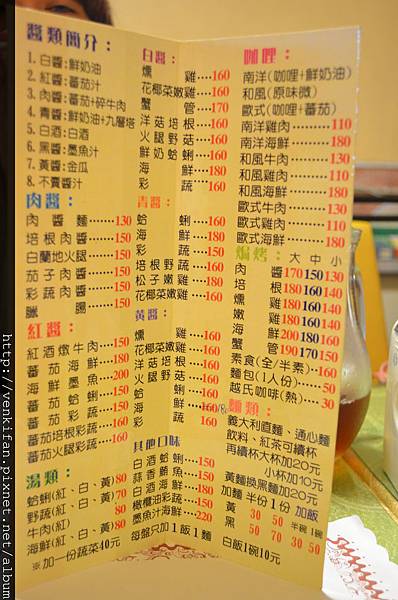 醬類簡介：
1.白醬：鮮奶油
2.紅醬：蕃茄汁
3.肉醬：蕃茄+碎牛肉
4.青醬：鮮奶油+九層塔
5.白酒：白酒
6.黑醬：墨魚汁
7.黃醬：金瓜
8.不賣醬汁
肉醬：
肉醬麵……130
培根肉醬……150
白蘭地火腿……150
茄子肉醬……150
彩蔬肉醬……150
臘腸……150
紅醬：
紅酒燉牛肉……150
蕃茄海鮮……180
海鮮墨魚……200
蕃茄蛤蜊……150
蕃茄彩蔬……150
蕃茄培根彩蔬……160
蕃茄火腿彩蔬……160
湯類：
蛤蜊(紅、白、黃)80
野蔬(紅、白、黃)80
牛肉(紅)80
海鮮(紅、白、黃)80
※加一份蔬菜40元
白醬：
燻雞……160
花椰菜嫩雞……160
蟹管……170
洋菇培根……160
火腿野菇……160
鮮奶蛤蜊……160
海鮮……180
彩蔬……160
青醬：
蛤蜊……150
海鮮……180
彩蔬……150
培根野蔬……160
松子嫩雞……180
花椰菜嫩雞……160
黃醬：
燻雞……160
花椰菜嫩雞……160
洋菇培根……160
火腿野菇……160
蛤蜊……160
海鮮……180
彩蔬 160
其他口味
白酒蛤蜊……150
蒜香鯷魚……150
白酒海鮮……180
橄欖油彩蔬……150
墨魚汁海鮮……220
每盤只加1飽1麵
咖哩：
南洋(咖哩+鮮奶油)
和風(原味微)
歐式(咖哩+蕃茄)
南洋雞肉……110
南洋海鮮……180
和風牛肉……130
和風雞肉……110
和風海鮮……180
歐式牛肉……130
歐式雞肉……110
歐式海鮮……180
焗烤：大中小
肉醬170 150 130
培根180 160 140
燻雞180 160 140
嫩雞180 160 140
海鮮200 180 160
蟹管190 170 150
素食(全/半素)……160
麵包(1人份)……50
越氏咖啡(熱)……30
麵類：
義大利直麵、通心麵
飲料、紅茶可續杯
再續杯大杯加20元
小杯加10元
黃麵換黑麵加20元
加麵 半份 1份 加飯
黃 30 50 半碗 1碗
黑 50 70 30 50
白飯1碗10元
http://venkifan.pixnet.net/album